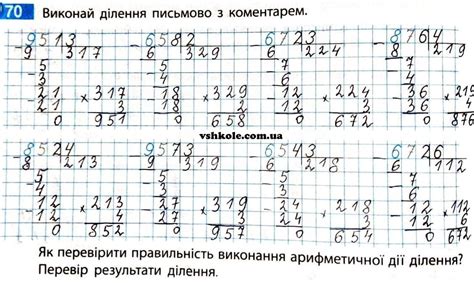 70 Виконай ділення письмово з коментарем.
9513 6582 6723 8764
9 317 6 329 6 8 219
5 5 7 7
3 4 6 4
21 × 317 18 × 329 12 × 224 36 × 219
21 3 18 2 12 3 36 4
0 951 0 658 0 672 0 876
vshkole.com.ua
8524 9573 6543 6726
8 213 9 319 6 218 6 112
5 5 5
4 3
12 × 213 27 × 319 × 218 12 × 112
12 4 27 3 3 12 6
0 852 0 957 0 654 0 672
Як перевірити правильність виконання арифметичної дії ділення?
Перевір результати ділення.